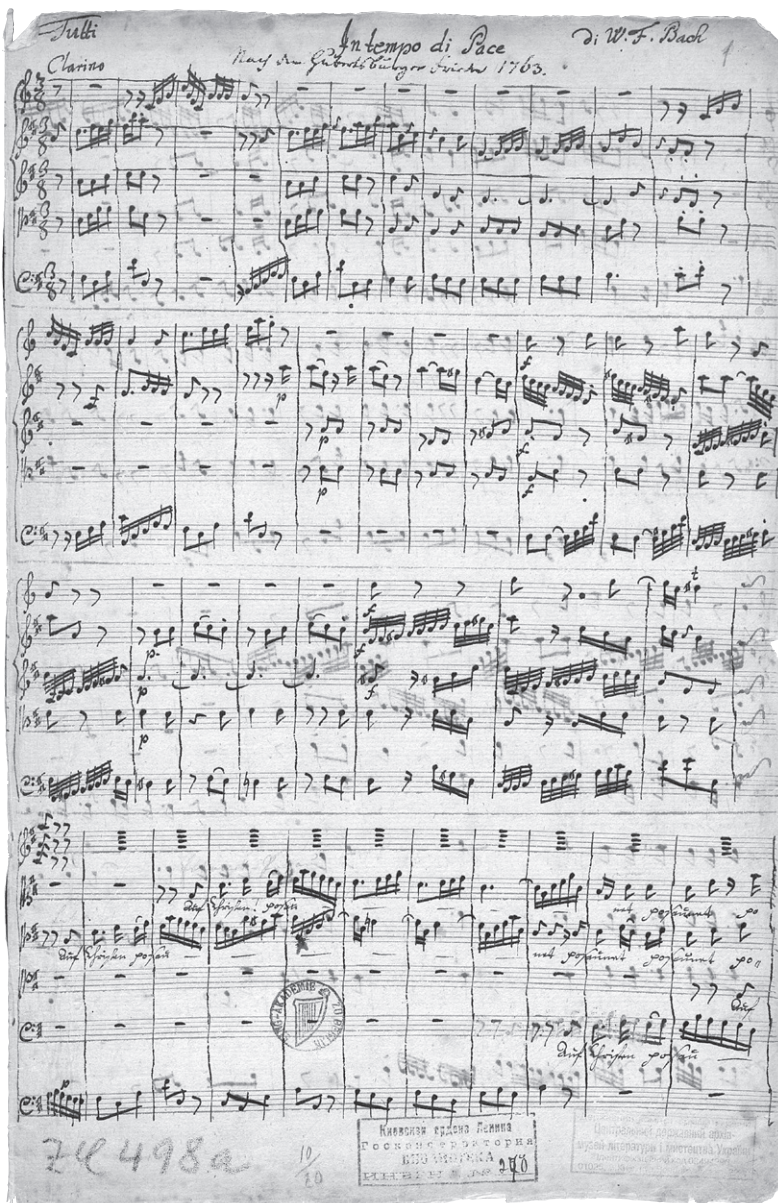 Tutti
In tempo di Pace
di W. F. Bach
1
Clarino
Nach dem Hubertsburger Frieden 1763.
p
p
p
f
f
f
p
p
p
f
f
f
t
Auf Christen posau
net posaunet po
Auf Christen posau
net posaunet posaunet po
Auf
Auf Christen posau
p
SING-AKADEMIE ZU BERLIN
ZC 498a
10/20
Киевская ордена Ленина
Госконсерватория
БИБЛИОТЕКА
Центральний державний архів-
музей літератури і мистецтва України